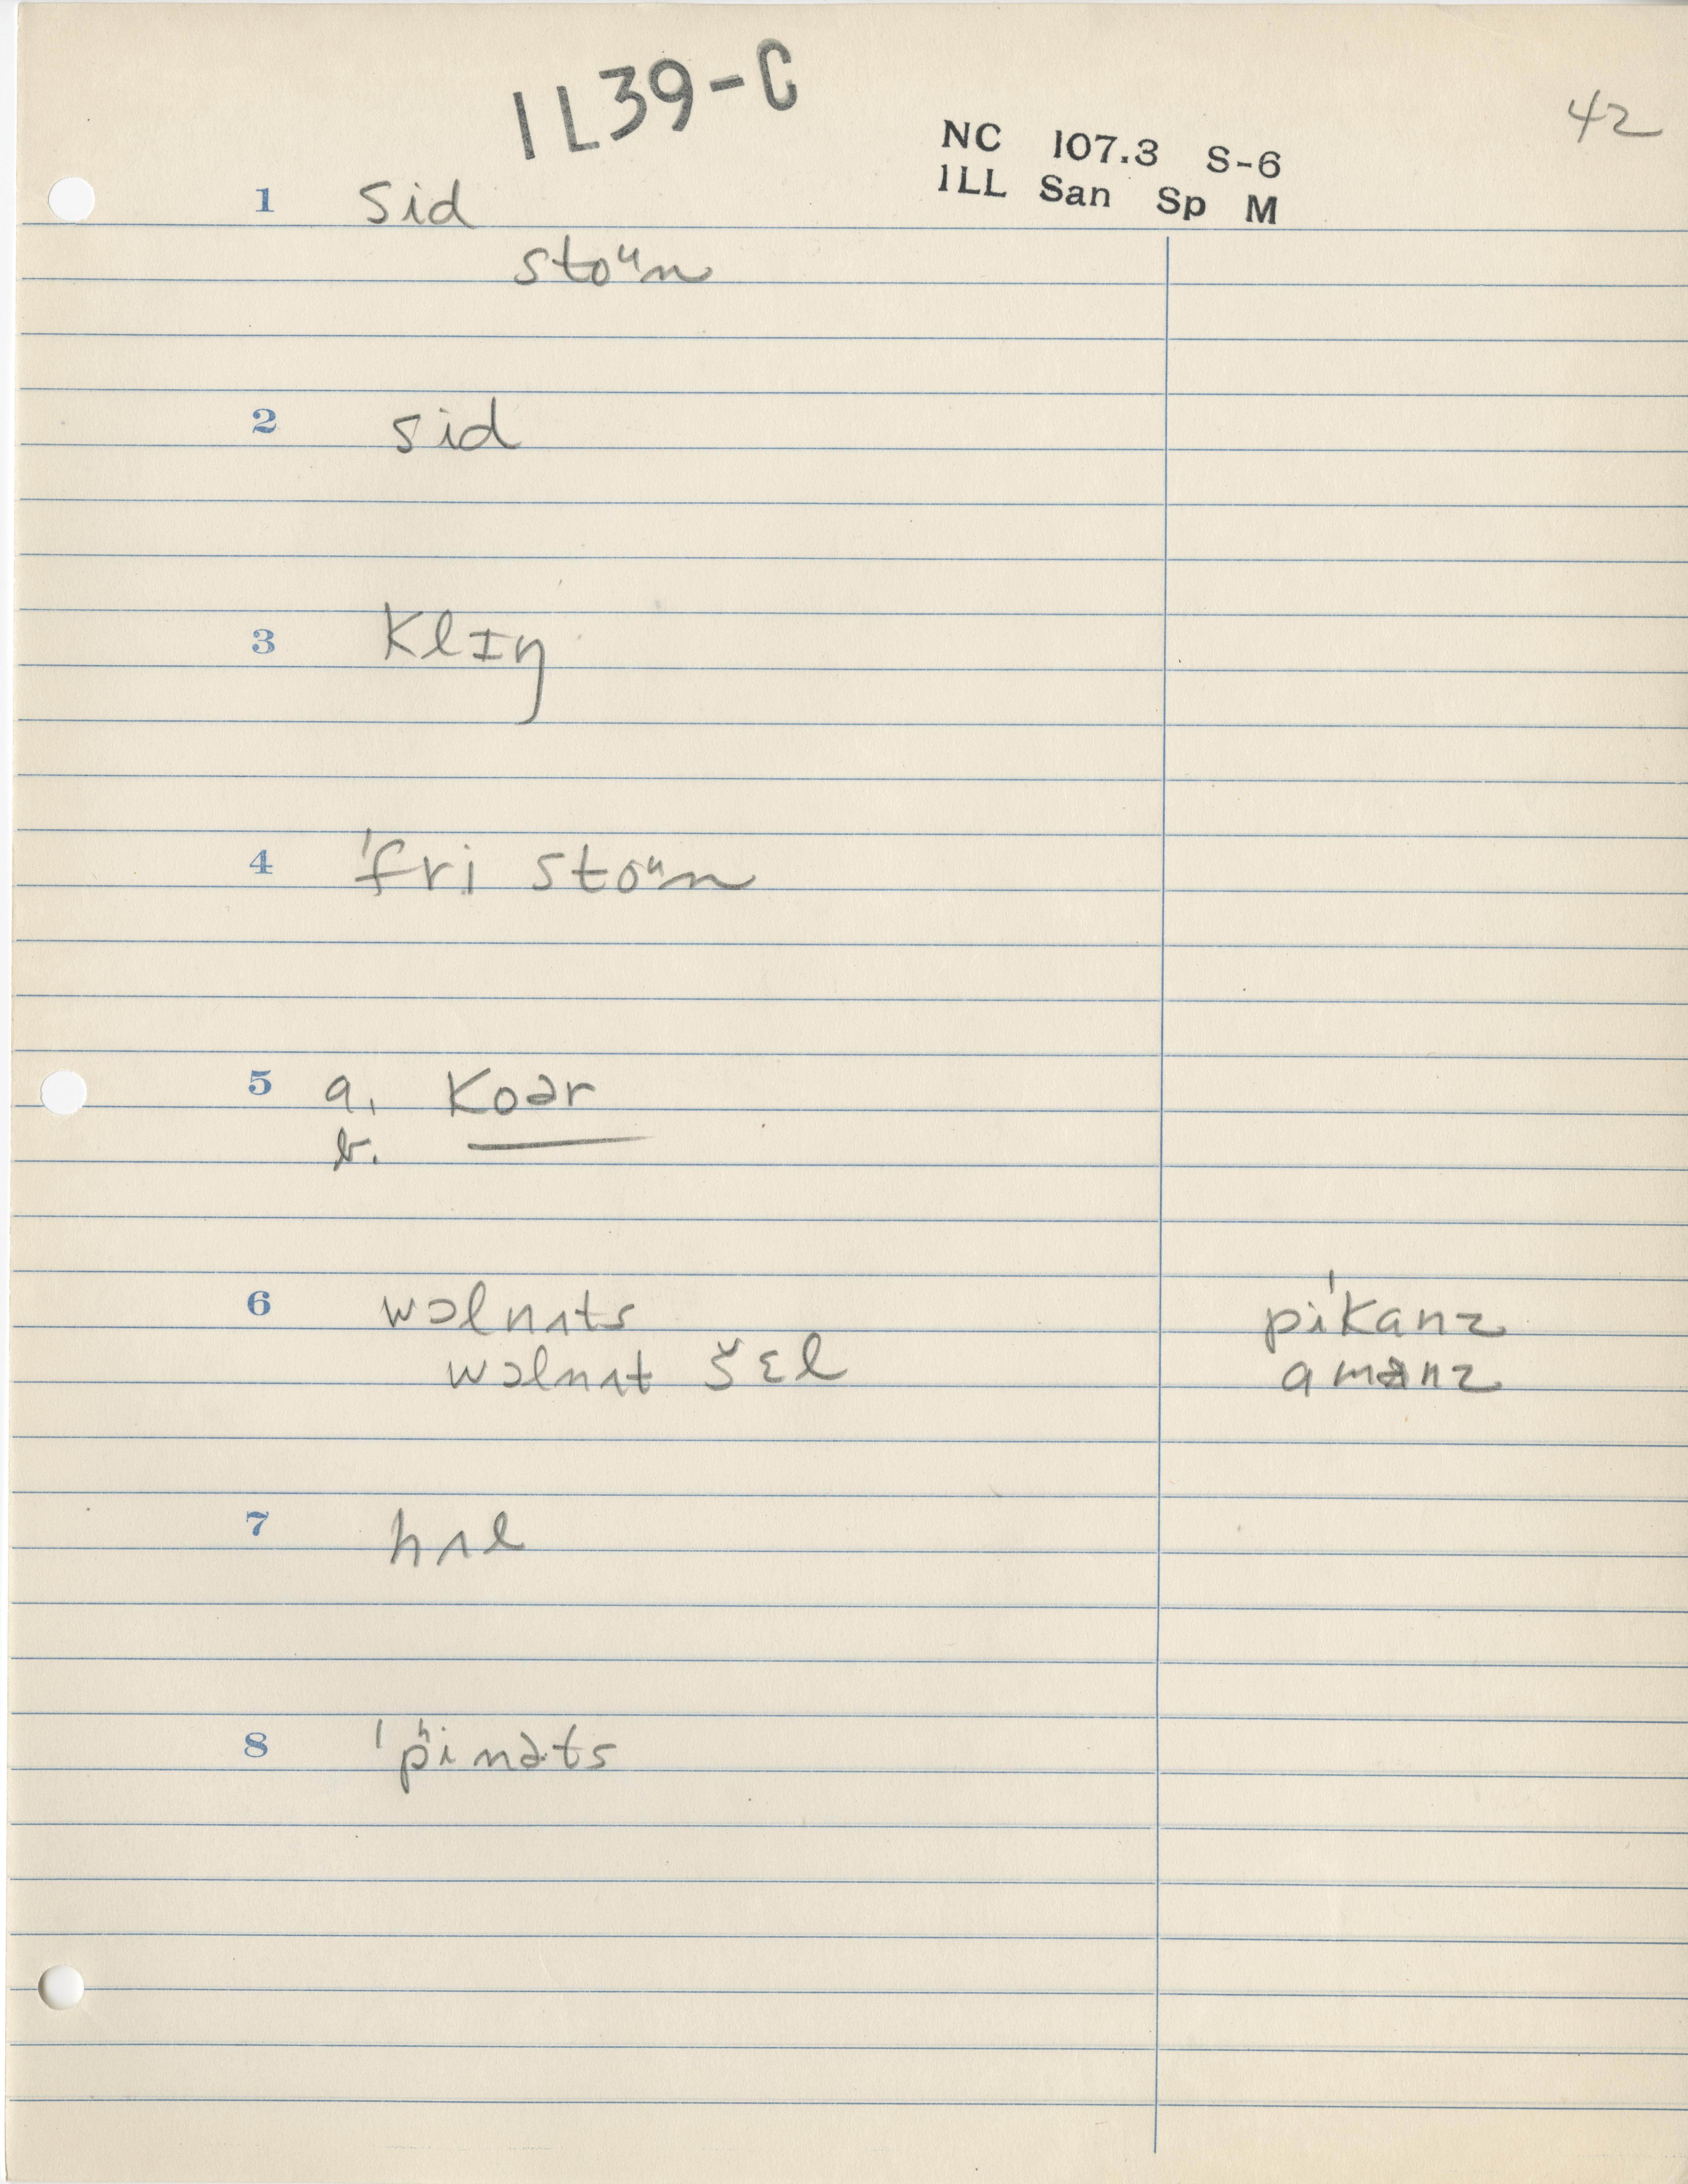 1L39-C
42
NC 107.3 S-6
ILL San Sp M
1 sid
stoᵘn
2 sid
3 klɪŋ
4 ˈfri stoᵘn
5 a. koər
b. ——
6 wɔlnʌts pɪˈkanz
wɔlnʌt šɛl amənz
7 hʌl
8 ˈpʰinəts